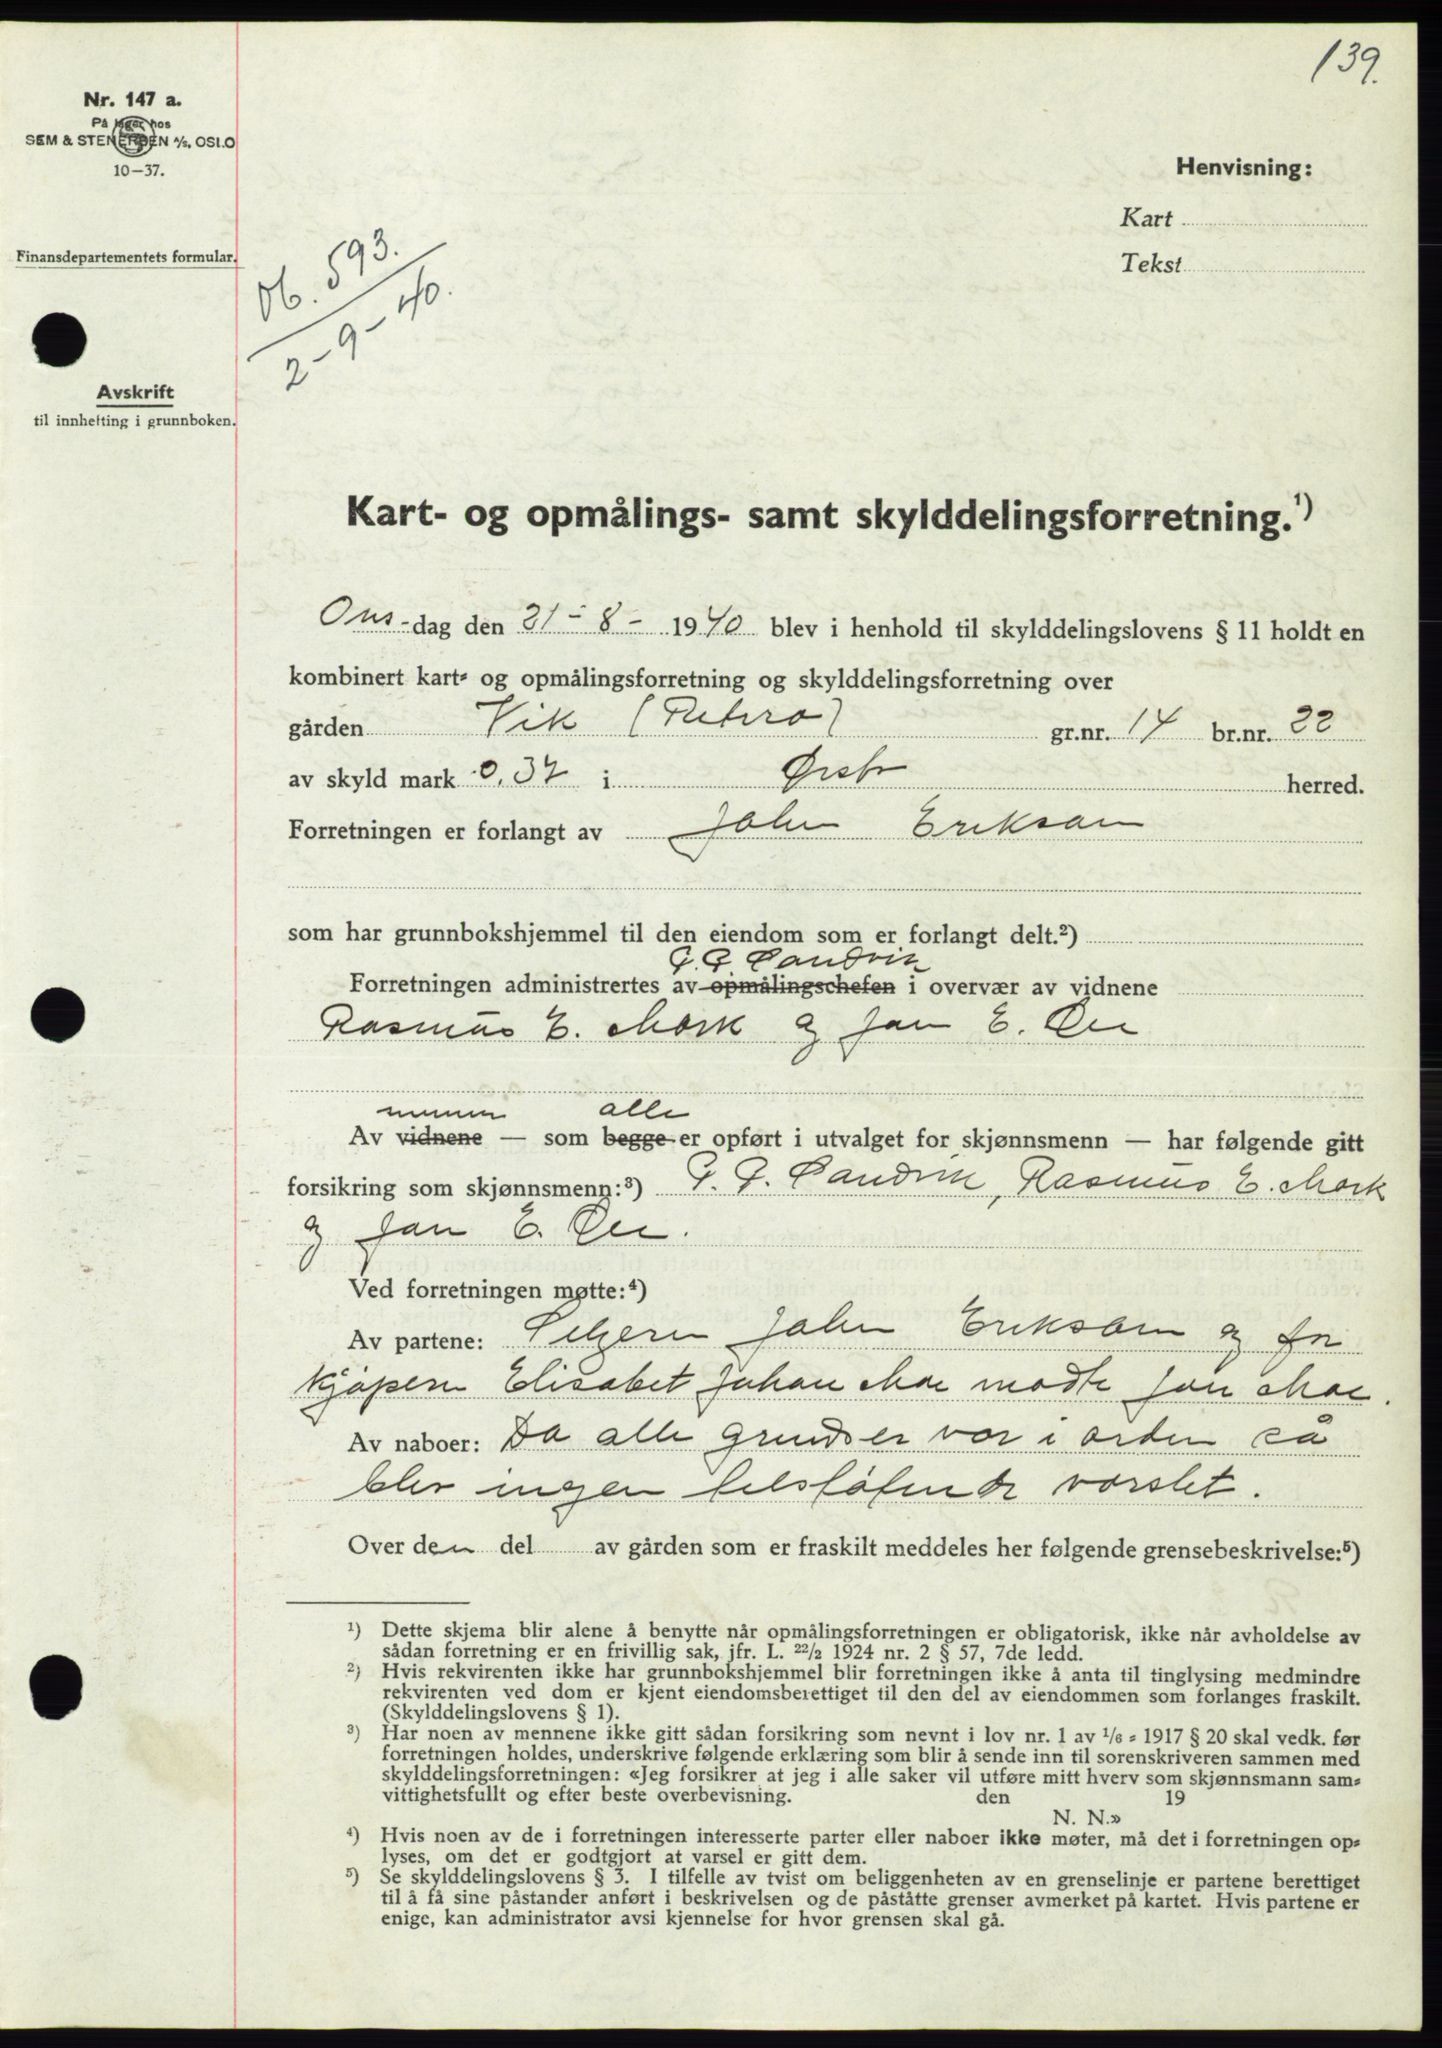 139.
Nr. 147 a.
På lager hos
SEM & STENERSEN A/S, OSLO
10-37.
Henvisning:
Kart
Tekst
Finansdepartementets formular.
Db. 593.
2-9-40.
Avskrift
til innhefting i grunnboken.
Kart- og opmålings- samt skylddelingsforretning.¹)
Ons-dag den 21-8-1940 blev i henhold til skylddelingslovens § 11 holdt en
kombinert kart- og opmålingsforretning og skylddelingsforretning over
gården Vik ( ) gr.nr. 14 br.nr. 22
av skyld mark 0,37 i Ørsta herred.
Forretningen er forlangt av John Eriksen
som har grunnbokshjemmel til den eiendom som er forlangt delt.²)
P. P. Sandvik
Forretningen administrertes av opmålingschefen i overvær av vidnene
Rasmus E. Mork og Jan E. Øie
mennene alle
Av vidnene — som begge er opført i utvalget for skjønnsmenn — har følgende gitt
forsikring som skjønnsmenn:³) P. P. Sandvik, Rasmus E. Mork
og Jan E. Øie.
Ved forretningen møtte:⁴)
Av partene: Selgeren John Eriksen og for
kjøperen Elisabet Johan Moe møtte Jon Moe.
Av naboer: Da alle grendser var i orden så
blev ingen tilstøtende varslet.
Over den del av gården som er fraskilt meddeles her følgende grensebeskrivelse:⁵)
¹) Dette skjema blir alene å benytte når opmålingsforretningen er obligatorisk, ikke når avholdelse av
sådan forretning er en frivillig sak, jfr. L. 22/2 1924 nr. 2 § 57, 7de ledd.
²) Hvis rekvirenten ikke har grunnbokshjemmel blir forretningen ikke å anta til tinglysing medmindre
rekvirenten ved dom er kjent eiendomsberettiget til den del av eiendommen som forlanges fraskilt.
(Skylddelingslovens § 1).
³) Har noen av mennene ikke gitt sådan forsikring som nevnt i lov nr. 1 av 1/6 - 1917 § 20 skal vedk. før
forretningen holdes, underskrive følgende erklæring som blir å sende inn til sorenskriveren sammen med
skylddelingsforretningen: «Jeg forsikrer at jeg i alle saker vil utføre mitt hverv som skjønnsmann sam-
vittighetsfullt og efter beste overbevisning. den 19
N. N.»
⁴) Hvis noen av de i forretningen interesserte parter eller naboer ikke møter, må det i forretningen op-
lyses, om det er godtgjort at varsel er gitt dem.
⁵) Se skylddelingslovens § 3. I tilfelle av tvist om beliggenheten av en grenselinje er partene berettiget
til å få sine påstander anført i beskrivelsen og de påståtte grenser avmerket på kartet. Hvis partene er
enige, kan administrator avsi kjennelse for hvor grensen skal gå.